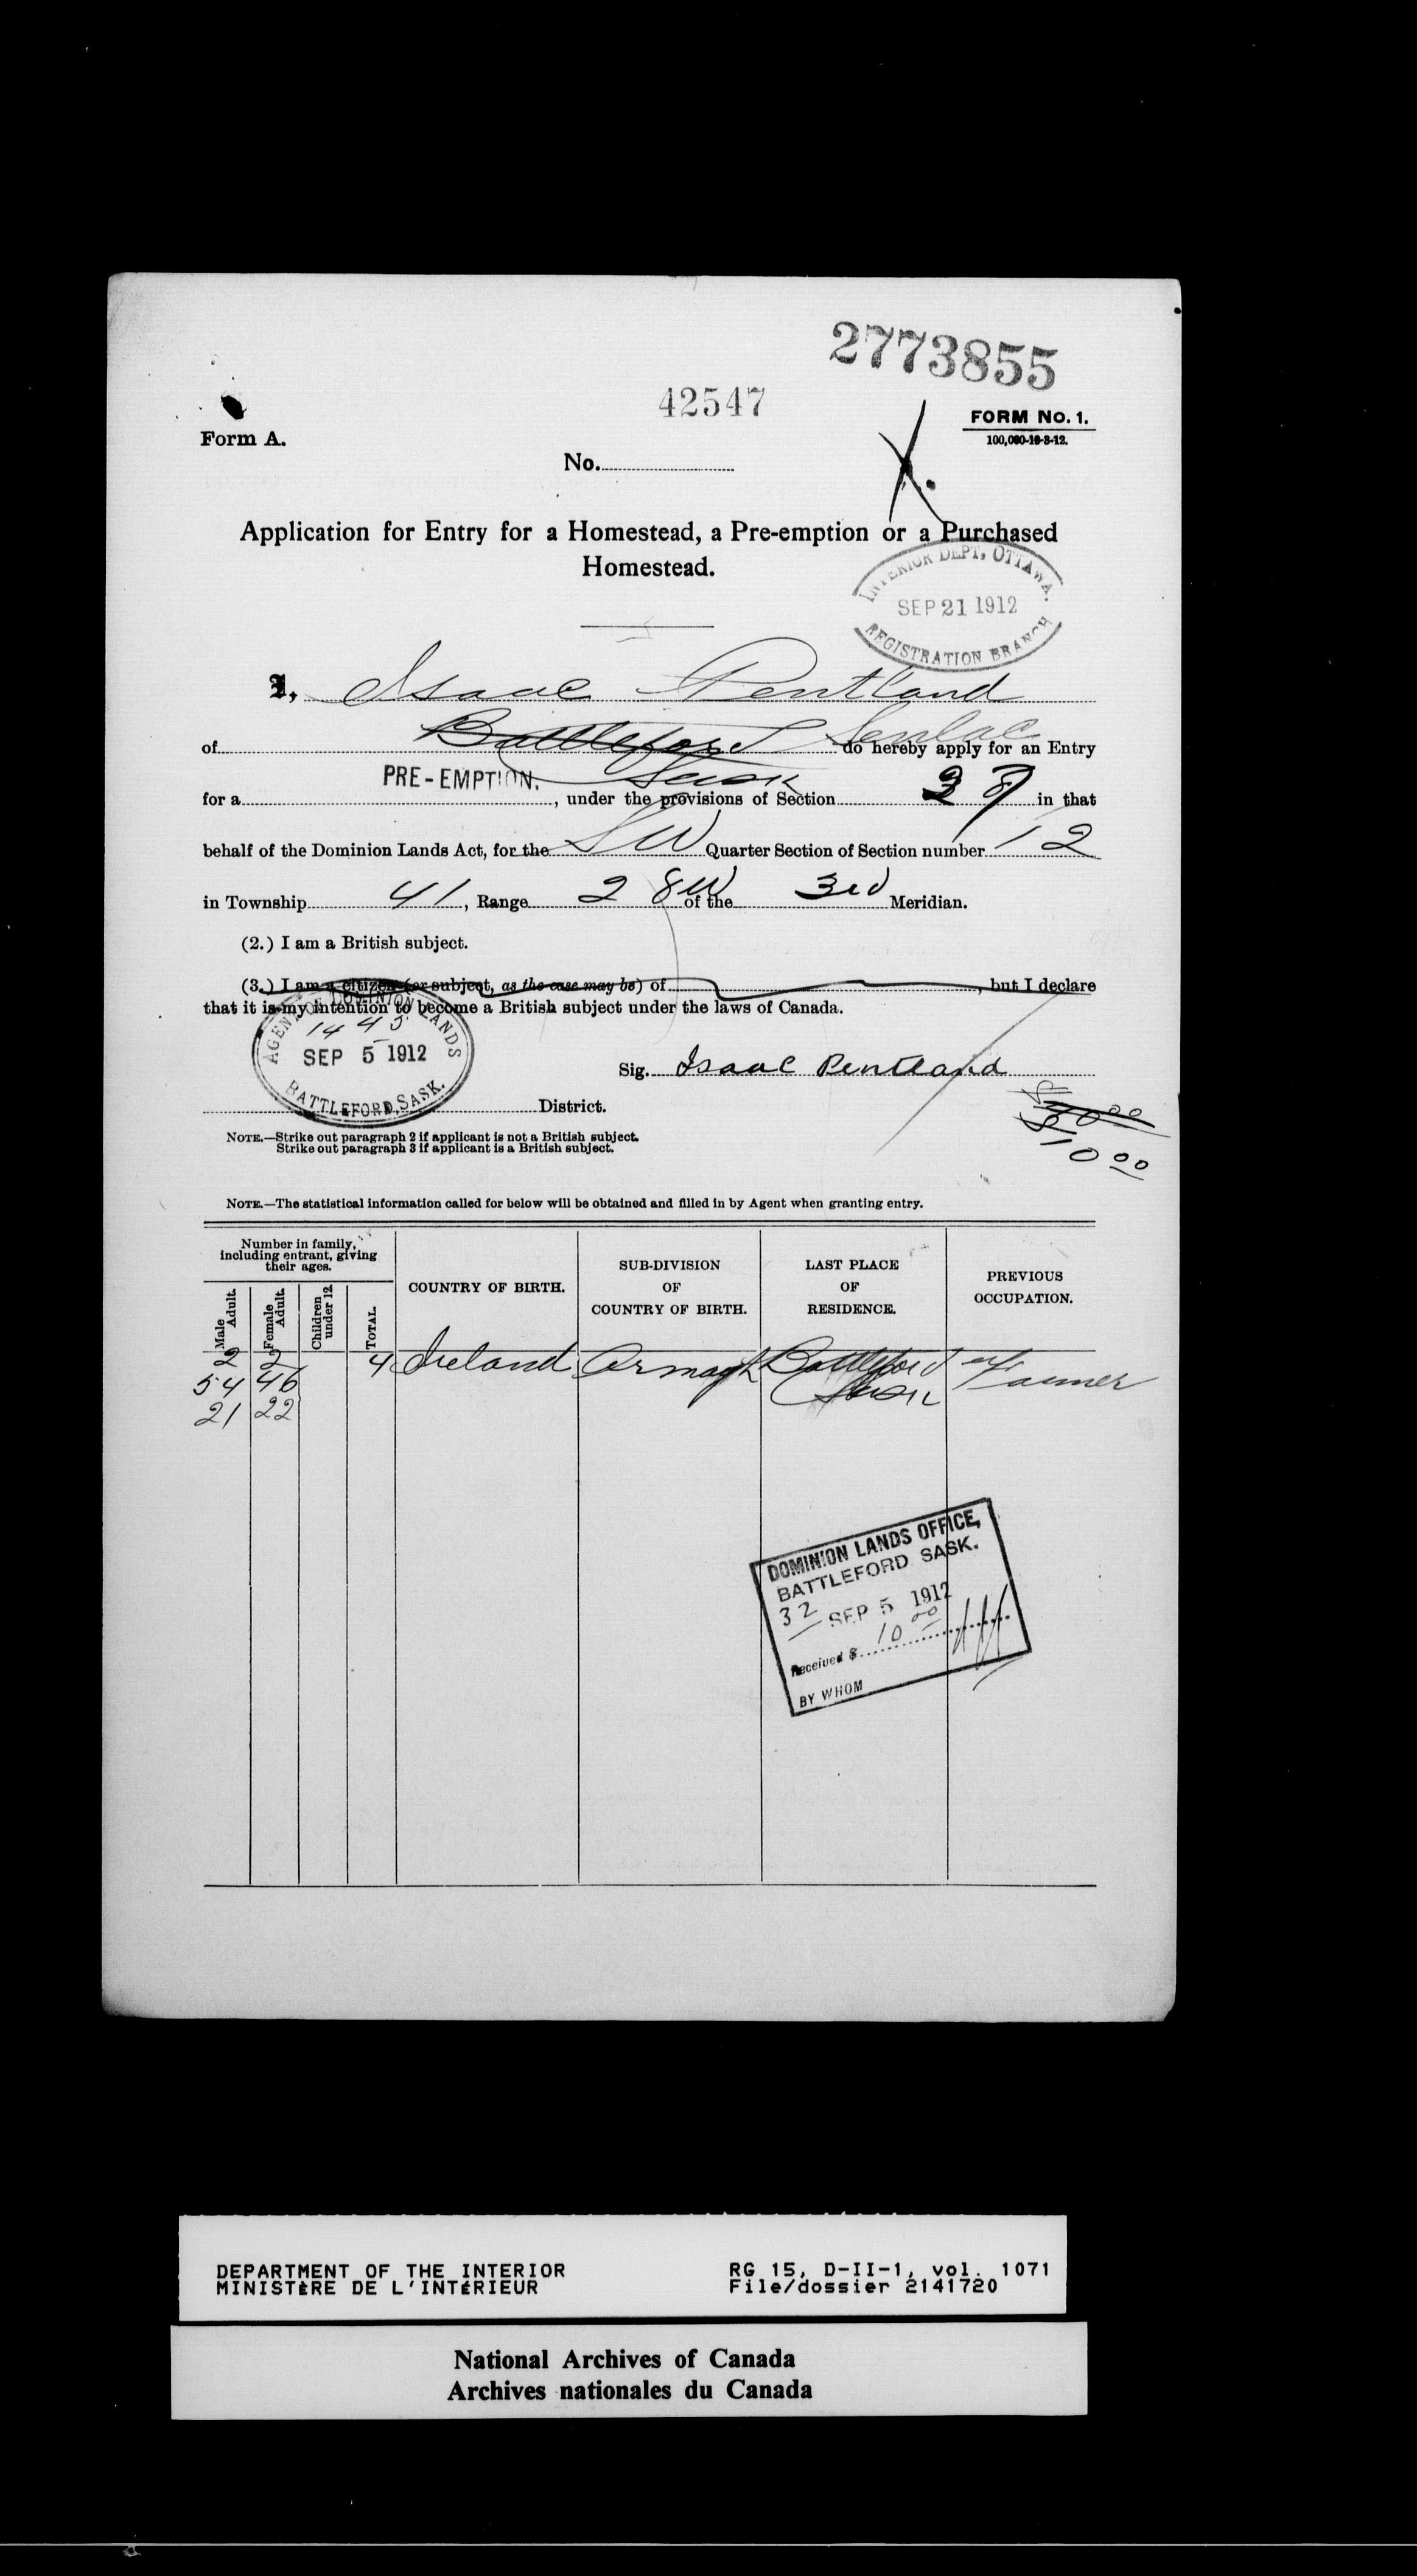 2773855
42547
FORM No. 1.
100,000-10-8-12.
Form A.
No.
Application for Entry for a Homestead, a Pre-emption or a Purchased
Homestead.
INTERIOR DEPT, OTTAWA.
SEP 21 1912
REGISTRATION BRANCH
I, Isaac Pentland
of Battleford Senlac do hereby apply for an Entry
Sask
for a PRE-EMPTION. , under the provisions of Section in that
behalf of the Dominion Lands Act, for the SW Quarter Section of Section number 12
in Township 41, Range 28 W of the 3rd Meridian.
(2.) I am a British subject.
(3.) I am a citizen (or subject, as the case may be) of , but I declare
that it is my intention to become a British subject under the laws of Canada.
AGENT OF DOMINION LANDS
1445
SEP 5 1912
BATTLEFORD, SASK.
Sig. Isaac Pentland
District.
10 00
NOTE.—Strike out paragraph 2 if applicant is not a British subject.
Strike out paragraph 3 if applicant is a British subject.
NOTE.—The statistical information called for below will be obtained and filled in by Agent when granting entry.
Number in family, including entrant, giving their ages.
Male Adult.
Female Adult.
Children under 12
TOTAL.
COUNTRY OF BIRTH.
SUB-DIVISION OF COUNTRY OF BIRTH.
LAST PLACE OF RESIDENCE.
PREVIOUS OCCUPATION.
2 2 4 Ireland Armagh Battleford Farmer
54 46 Sask
21 22
DOMINION LANDS OFFICE,
BATTLEFORD SASK.
32 SEP 5 1912
Received $ 10 00
BY WHOM
DEPARTMENT OF THE INTERIOR RG 15, D-II-1, vol. 1071
MINISTÈRE DE L'INTÉRIEUR File/dossier 2141720
National Archives of Canada
Archives nationales du Canada